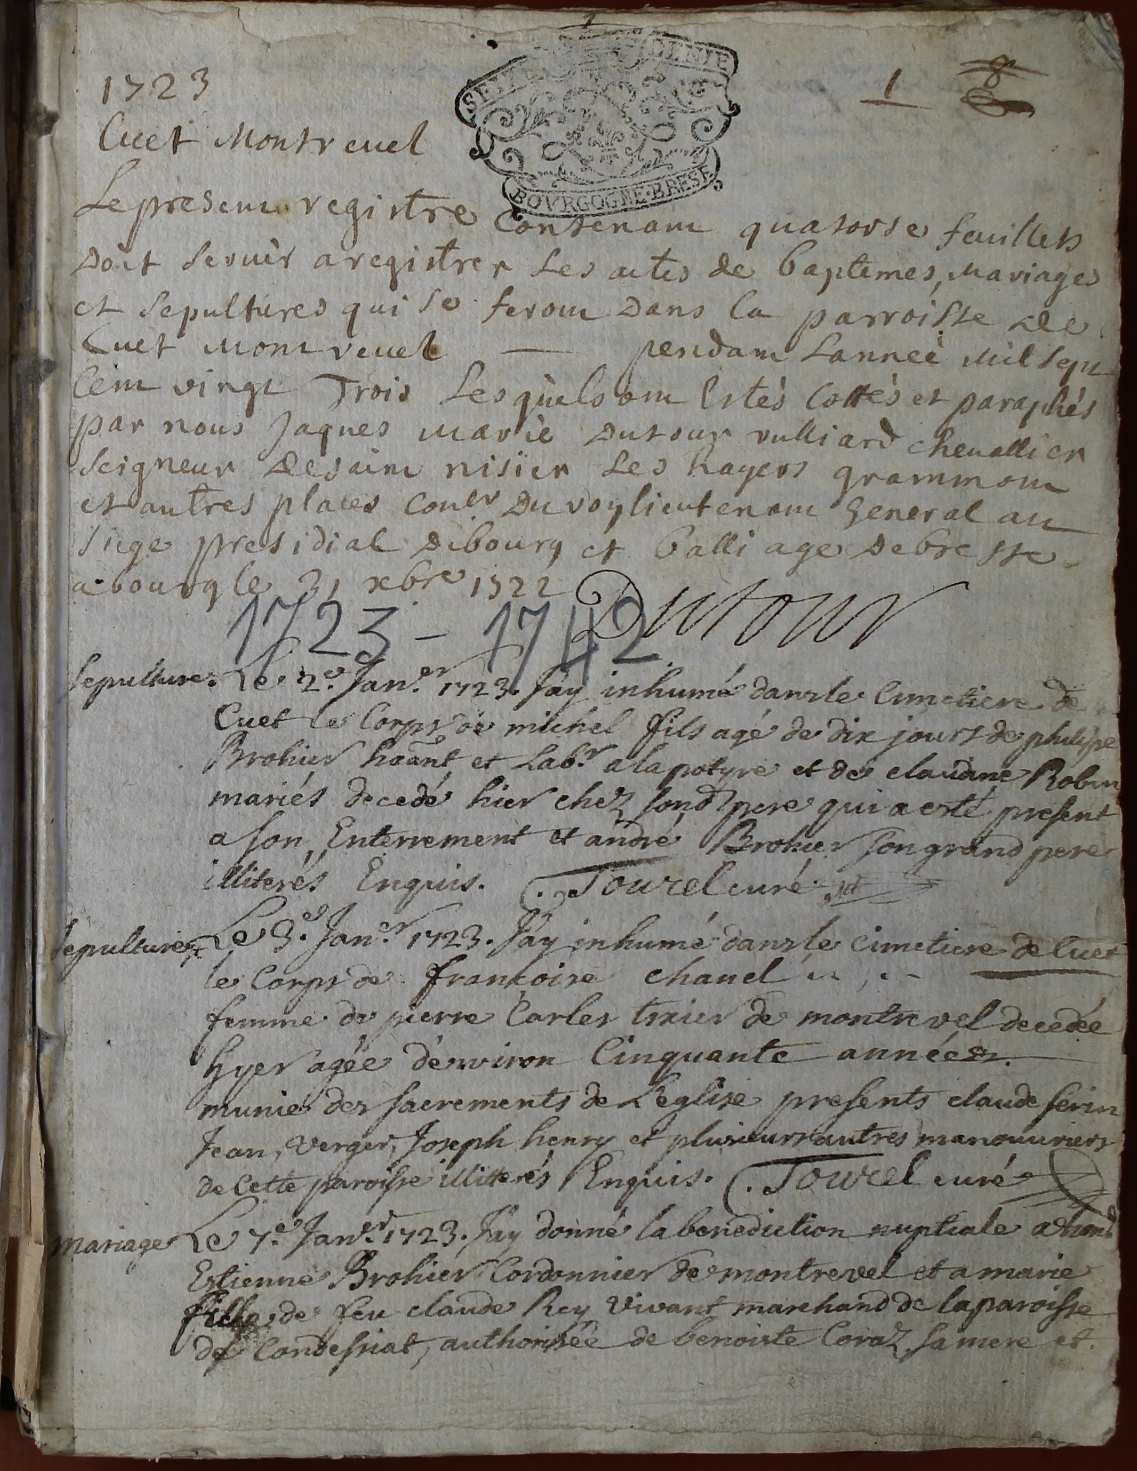 1723
1 8
Cuet Montrevel
BOVRGOGNE·BRESSE
Le present registre Contenant quatorse feuillets
Doit servir a registrer Les actes de baptemes, Mariages
et sepultures qui se feront Dans la parroisse de
Cuet Montrevel — pendant Lanneé Mil sept
Cent vingt Trois Lesquels ont Estés Cottés et paraphés
par nous Jaques Marie Dutour vulliard chevallier
Seigneur de saint nisier Les hayes grammont
et autres places Coner Du roy lieutenant General au
Siege presidial de bourg et balliage de bresse
a bourg le 31 xbre 1722
Dutour
1723 - 1742
Sepulture. Le 2e. Janer. 1723. J'ay inhumé dans le Cimetiere de
Cuet le Corps de michel fils agé de dix jours de philippe
Brohier hãant et Labr. a la potyre et de claudine Robin
mariés decedé hier chez sond pere qui a esté present
a son Enterrement et andré Brohier son grand pere
illiterés Enquis. Tourel curé
Sepulture. Le 3e. Janer. 1723. J'ay inhumé dans le Cimetiere de Cuet
le Corps de francoise chanel
femme de pierre Carles tixier de montrevel decedée
hyer agée d'environ Cinquante années.
munie des sacrements de L'eglise presents claude ferin
Jean Verger, Joseph henry et plusieurs autres manouvriers
de Cette paroisse illiterés Enquis. Tourel curé
Mariage Le 7e. Janer. 1723. J'ay donné la benediction nuptiale a
Estienne Brohier Cordonnier de montrevel et a marie
fille de feu claude Rey Vivant marchand de la paroisse
de Condessiat, authorisée de benoiste Coraz sa mere et